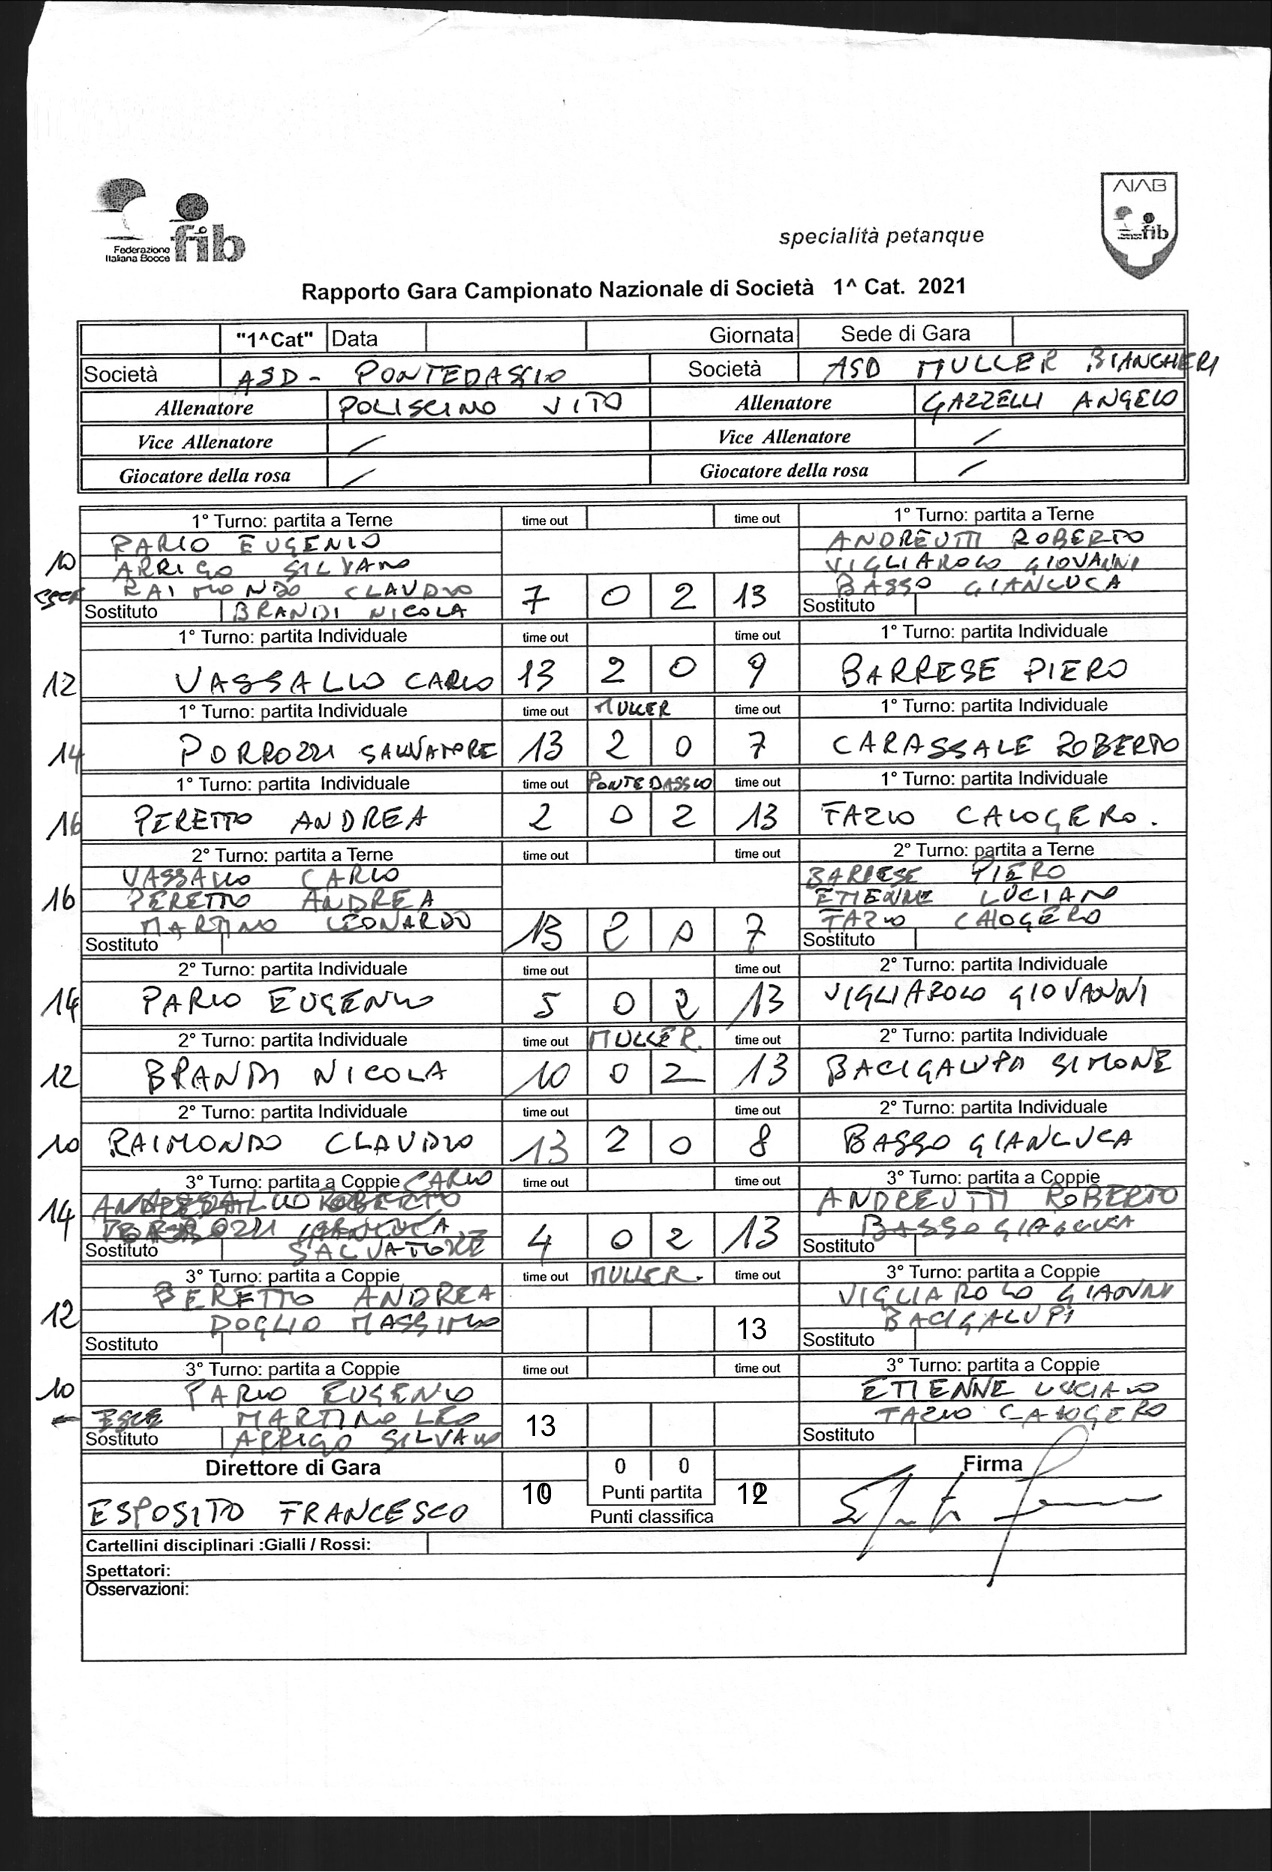 Federazione
Italiana Bocce
fib
AIAB
fib
specialità petanque
Rapporto Gara Campionato Nazionale di Società 1^ Cat. 2021
"1^Cat" Data Giornata Sede di Gara
Società ASD - PONTEDASSIO Società ASD MULLER BIANCHERI
Allenatore POLISCINO VITO Allenatore GAZZELLI ANGELO
Vice Allenatore / Vice Allenatore /
Giocatore della rosa / Giocatore della rosa /
1° Turno: partita a Terne time out time out 1° Turno: partita a Terne
PARIO EUGENIO ANDREUTTI ROBERTO
10 ARRIGO SILVANO VIGLIAROLO GIOVANNI
RAIMONDO CLAUDIO 7 0 2 13 BASSO GIANLUCA
Sostituto BRANDI NICOLA Sostituto
1° Turno: partita Individuale time out time out 1° Turno: partita Individuale
12 VASSALLO CARLO 13 2 0 9 BARRESE PIERO
1° Turno: partita Individuale time out MULLER time out 1° Turno: partita Individuale
14 PORROZZI SALVATORE 13 2 0 7 CARASSALE ROBERTO
1° Turno: partita Individuale time out PONTEDASSIO time out 1° Turno: partita Individuale
16 PERETTO ANDREA 2 0 2 13 FAZIO CALOGERO.
2° Turno: partita a Terne time out time out 2° Turno: partita a Terne
VASSALLO CARLO BARRESE PIERO
16 PERETTO ANDREA ETIENNE LUCIANO
MARTINO LEONARDO 13 2 0 7 FAZIO CALOGERO
Sostituto Sostituto
2° Turno: partita Individuale time out time out 2° Turno: partita Individuale
14 PARIO EUGENIO 5 0 2 13 VIGLIAROLO GIOVANNI
2° Turno: partita Individuale time out MULLER. time out 2° Turno: partita Individuale
12 BRANDI NICOLA 10 0 2 13 BACIGALUPO SIMONE
2° Turno: partita Individuale time out time out 2° Turno: partita Individuale
10 RAIMONDO CLAUDIO 13 2 0 8 BASSO GIANLUCA
3° Turno: partita a Coppie CARLO time out time out 3° Turno: partita a Coppie
14 ANDREUTTI ROBERTO
4 0 2 13 BASSO GIANLUCA
Sostituto SALVATORE Sostituto
3° Turno: partita a Coppie time out MULLER. time out 3° Turno: partita a Coppie
PERETTO ANDREA VIGLIAROLO
12 DOGLIO MASSIMO 13 BACIGALUPI
Sostituto Sostituto
3° Turno: partita a Coppie time out time out 3° Turno: partita a Coppie
10 PARIO EUGENIO ETIENNE LUCIANO
ESCE MARTINO LEO 13 FAZIO CALOGERO
Sostituto ARRIGO SILVANO Sostituto
Direttore di Gara 0 0 Firma
ESPOSITO FRANCESCO Punti partita
Punti classifica
Cartellini disciplinari :Gialli / Rossi:
Spettatori:
Osservazioni: